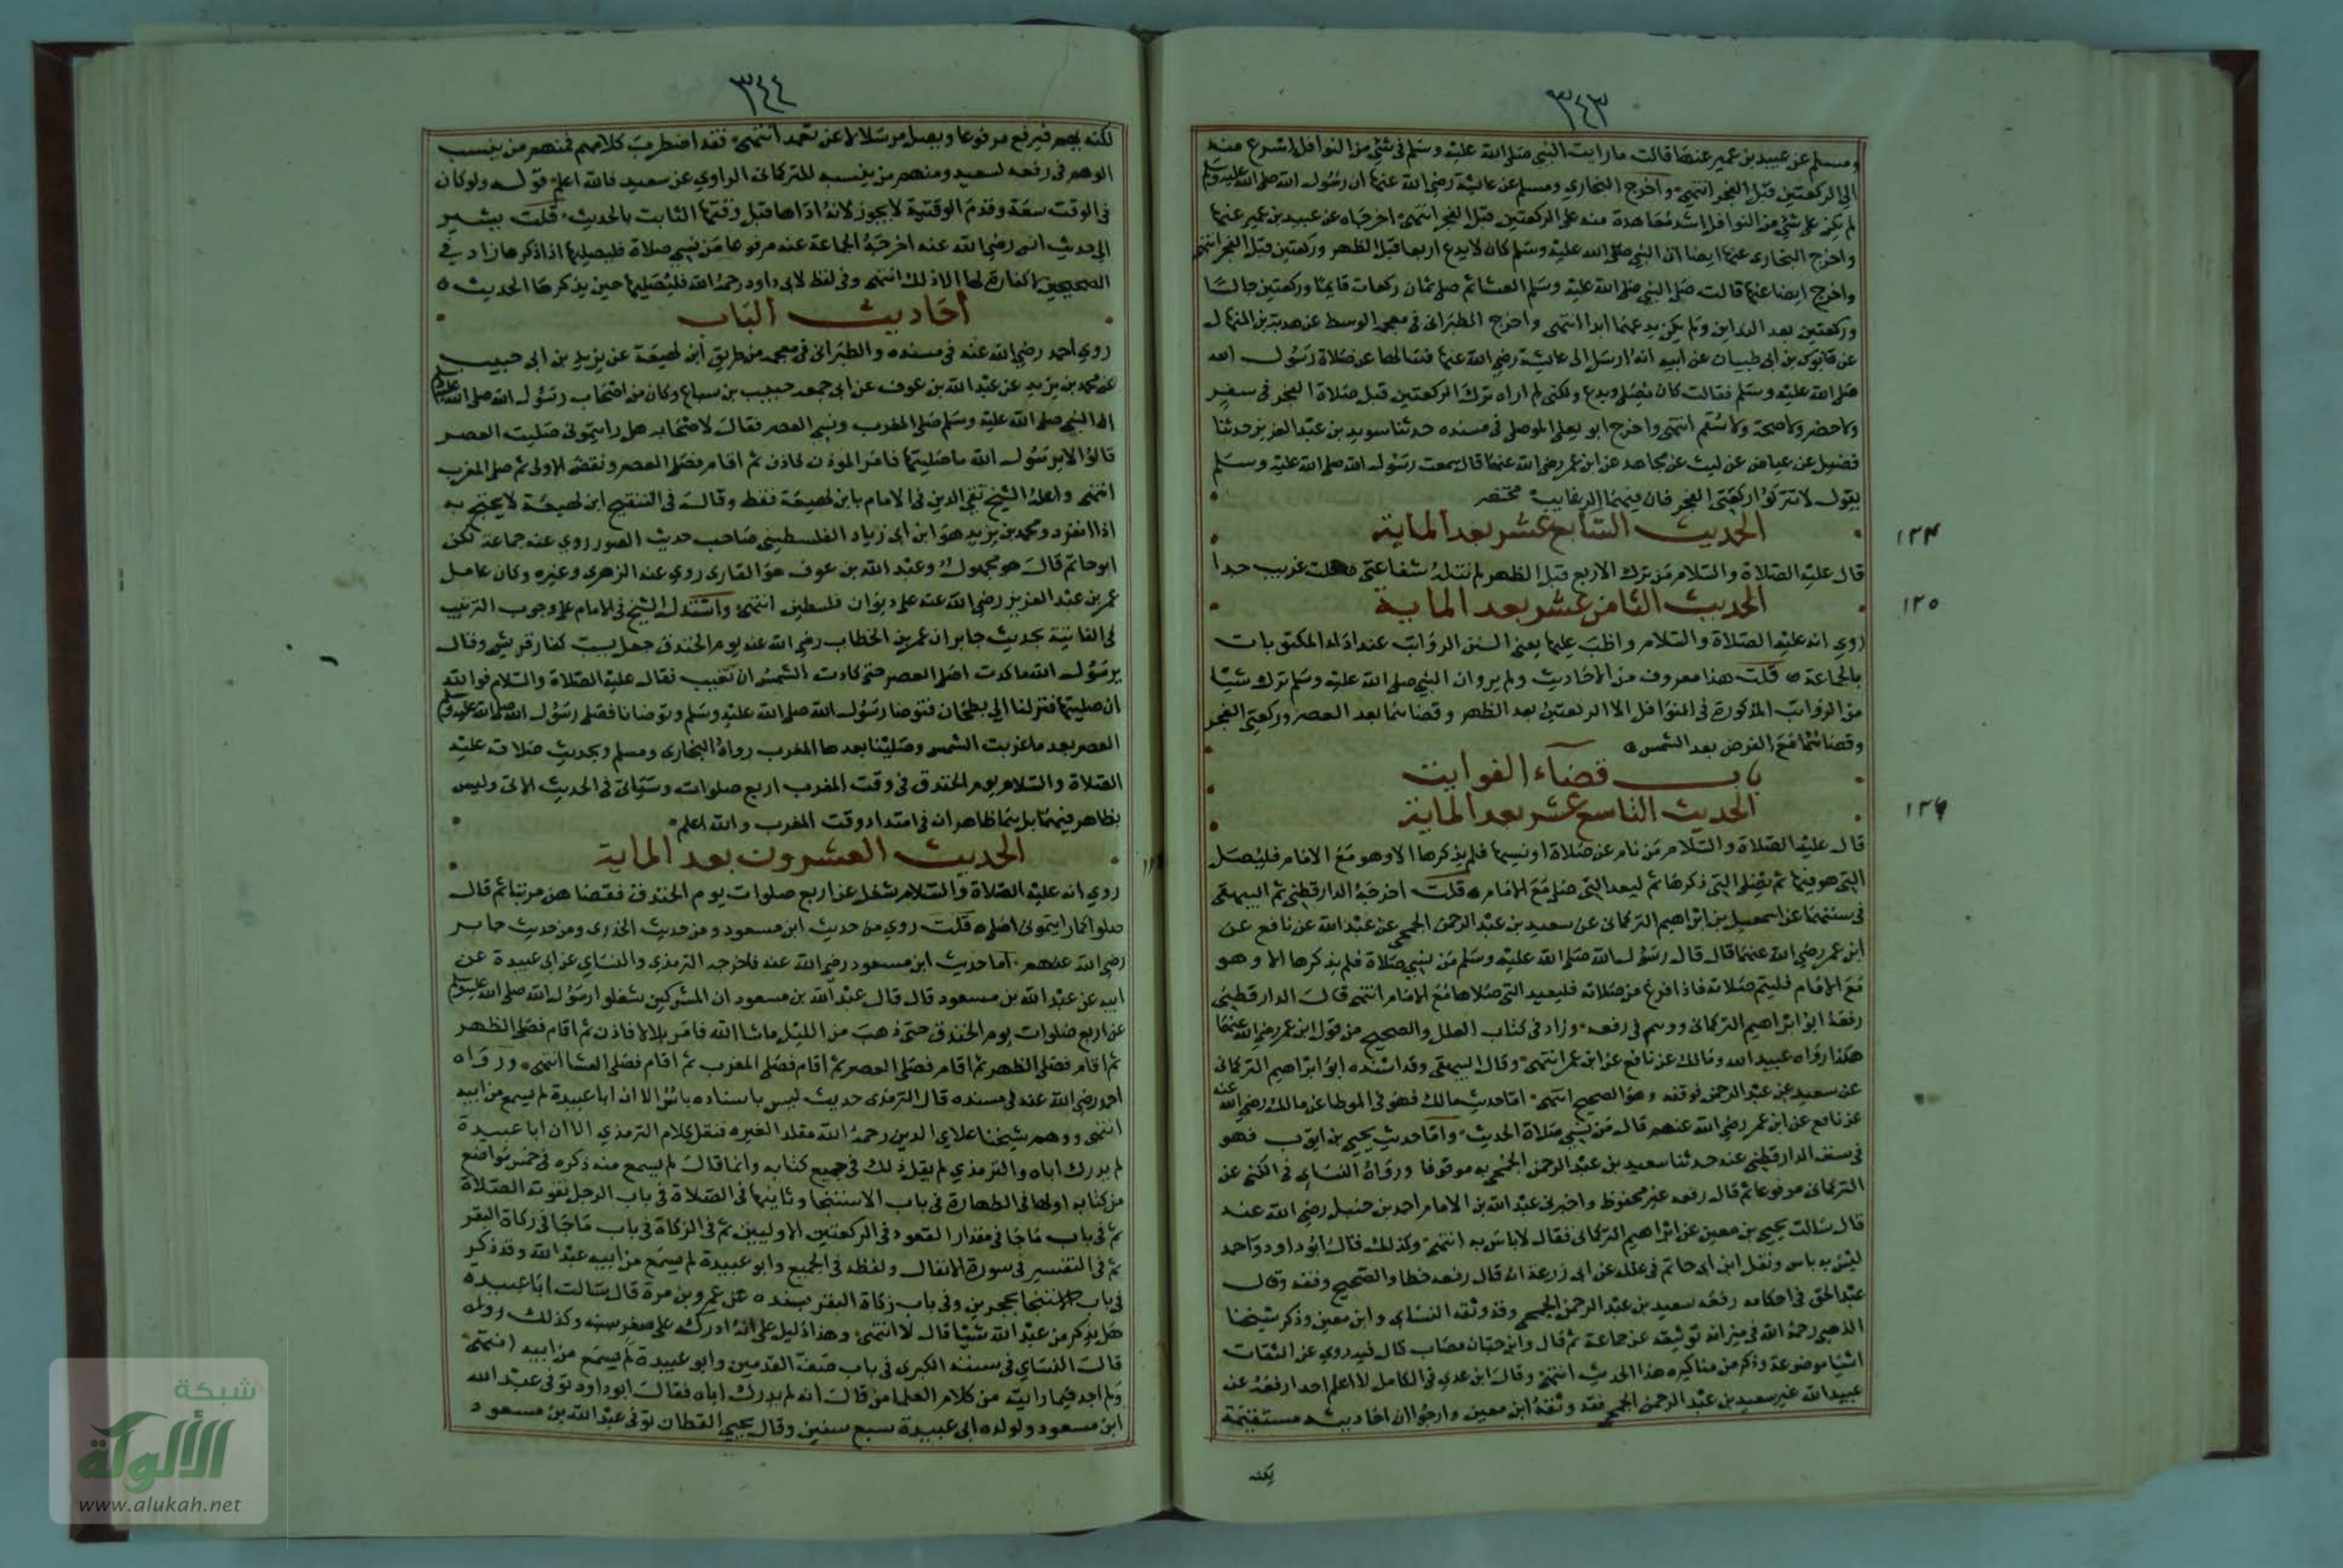 ٣٤٣
ومسلم عن عبيد بن عمير عنها قالت ما رايت النبي صلى الله عليه وسلم في شئ من النوافل اسرع منه
الى الركعتين قبل الفجر انتهى واخرج البخاري ومسلم عن عائشة رضي الله عنها ان رسول الله صلى الله عليه وسلم
لم يكن على شئ من النوافل اشد معاهدة منه على الركعتين قبل الفجر انتهى اخرجاه عن عبيد بن عمير عنها
واخرج البخارى عنها ايضا ان النبي صلى الله عليه وسلم كان لا يدع اربعا قبل الظهر وركعتين قبل الفجر انتهى
واخرج ايضا عنها قالت صلى النبي صلى الله عليه وسلم العشا ثم صلى ثمان ركعات قايما وركعتين جالسا
وركعتين بعد الندايين ولم يكن يدعهما ابدا انتهى واخرج الطبرانى في معجمه الوسط عن هدبة بن المنهال
عن قابوس بن ابى ظبيان عن ابيه انه ارسل الى عائشة رضي الله عنها فسالها عن صلاة رسول الله
صلى الله عليه وسلم فقالت كان يصلى ويدع ولكني لم اراه ترك الركعتين قبل صلاة الفجر في سفر
ولا حضر ولا صحة ولا سقم انتهى واخرج ابو يعلى الموصلى في مسنده حدثنا سويد بن عبد العزيز حدثنا
فضيل عن عياض عن ليث عن مجاهد عن ابن عمر رضي الله عنهما قال سمعت رسول الله صلى الله عليه وسلم
يقول لا تتركوا ركعتى الفجر فان فيهما الرغايب مختصر
الحديث السابع عشر بعد الماية
١٢٤
قال عليه الصلاة والسلام من ترك الاربع قبل الظهر لم تنله شفاعتى قلت غريب جدا
الحديث الثامن عشر بعد الماية
١٢٥
روي انه عليه الصلاة والسلام واظب عليها يعنى السنن الرواتب عند اداء المكتوبات
بالجماعة قلت هذا معروف من الاحاديث ولم يرو ان النبي صلى الله عليه وسلم ترك شيئا
من الرواتب المذكورة في النوافل الا الركعتين بعد الظهر وقضاهما بعد العصر وركعتى الفجر
وقضاهما مع الفرض بعد الشمس
باب قضاء الفوايت
الحديث التاسع عشر بعد الماية
١٢٦
قال عليه الصلاة والسلام من نام عن صلاة او نسيها فلم يذكرها الا وهو مع الامام فليصل
التى هو فيها ثم يصلى التى ذكرها ثم ليعد التى صلى مع الامام قلت اخرجه الدارقطنى ثم البيهقى
في سننهما عن اسمعيل بن ابراهيم الترجمانى عن سعيد بن عبد الرحمن الجمحى عن عبد الله عن نافع عن
ابن عمر رضي الله عنهما قال قال رسول الله صلى الله عليه وسلم من نسي صلاة فلم يذكرها الا وهو
مع الامام فليتم صلاته فاذا فرغ من صلاته فليعيد التى صلاها مع الامام انتهى قال الدارقطنى
رفعه ابو ابراهيم التركمانى ووهم في رفعه وزاد في كتاب العلل والصحيح من قول ابن عمر رضي الله عنهما
هكذا رواه عبيد الله ومالك عن نافع عن ابن عمر انتهى وقال البيهقى وقد اسنده ابو ابراهيم التركمانى
عن سعيد بن عبد الرحمن فوقفه وهو الصحيح انتهى اما حديث مالك فهو في الموطا عن مالك رضي الله عنه
عن نافع عن ابن عمر رضي الله عنهم قال من نسي صلاة الحديث واما حديث يحيى بن ايوب فهو
في سنن الدارقطنى عنه حدثنا سعيد بن عبد الرحمن الجمحى به موقوفا ورواه النسائى في الكنى عن
التركمانى مرفوعا ثم قال رفعه غير محفوظ واخبرنى عبد الله بن الامام احمد بن حنبل رضي الله عنه
قال سالت يحيى بن معين عن ابراهيم التركمانى فقال لا باس به انتهى وكذلك قال ابو داود واحمد
ليس به باس ونقل ابن ابى حاتم في علله عن ابى زرعة انه قال رفعه خطا والصحيح وقفه وقال
عبد الحق في احكامه رفعه سعيد بن عبد الرحمن الجمحى وقد وثقه النسائى وابن معين وذكر شيخنا
الذهبى رحمه الله في ميزانه توثيقه عن جماعة ثم قال وابن حبان قصاب قال فيه روي عن الثقات
اشيا موضوعة وذكر من مناكيره هذا الحديث انتهى وقال ابن عدي في الكامل لا اعلم احدا رفعه عن
عبيد الله غير سعيد بن عبد الرحمن الجمحى فقد وثقه ابن معين وارجو ان احاديثه مستقيمة
لكنه
٣٤٤
لكنه يهم فيرفع مرفوعا ويصل مرسلا لا عن تعمد انتهى فقد اضطرب كلامهم فمنهم من ينسب
الوهم في رفعه لسعيد ومنهم من ينسبه للتركمانى الراوي عن سعيد فالله اعلم قوله ولو كان
في الوقت سعة وقدم الوقتية لا يجوز لانه اداها قبل وقتها الثابت بالحديث قلت يشير
الى حديث انس رضي الله عنه اخرجه الجماعة عنه مرفوعا من نسي صلاة فليصليها اذا ذكرها زاد في
الصحيحين لا كفارة لها الا ذلك انتهى وفى لفظ لابى داود رحمه الله فليصليها حين يذكرها الحديث
احاديث الباب
روي احمد رضي الله عنه في مسنده والطبرانى في معجمه من طريق ابن لهيعة عن يزيد بن ابى حبيب
عن محمد بن يزيد عن عبد الله بن عوف عن ابى جمعه حبيب بن سباع وكان من اصحاب رسول الله صلى الله عليه وسلم
ان النبي صلى الله عليه وسلم صلى المغرب ونسي العصر فقال لاصحابه هل رايتمونى صليت العصر
قالوا لا يرسول الله ما صليتها فامر الموذن فاذن ثم اقام فصلى العصر ونقض الاولى ثم صلى المغرب
انتهى واعله الشيخ تقى الدين في الامام بابن لهيعة فقط وقال في التنقيح ابن لهيعة لا يحتج به
اذا انفرد ومحمد بن يزيد هو ابن ابى زياد الفلسطينى صاحب حديث الصور روي عنه جماعة لكن
ابو حاتم قال هو مجهول وعبد الله بن عوف هو القارى روي عنه الزهرى وغيره وكان عامل
عمر بن عبد العزيز رضي الله عنه على ديوان فلسطين انتهى واستدل الشيخ في الامام على وجوب الترتيب
فى الفائتة بحديث جابر ان عمر بن الخطاب رضي الله عنه يوم الخندق جعل يسب كفار قريش وقال
يرسول الله ما كدت اصلى العصر حتى كادت الشمس ان تغيب فقال عليه الصلاة والسلام فوالله
ان صليتها فنزلنا الى بطحان فتوضا رسول الله صلى الله عليه وسلم وتوضانا فصلى رسول الله صلى الله عليه وسلم
العصر بعد ما غربت الشمس وصلينا بعدها المغرب رواه البخارى ومسلم وبحديث صلاته عليه
الصلاة والسلام يوم الخندق في وقت المغرب اربع صلوات وسياتى في الحديث الاتى وليس
بظاهر فيهما بل هما ظاهران في امتداد وقت المغرب والله اعلم
الحديث العشرون بعد الماية
روي انه عليه الصلاة والسلام شغل عن اربع صلوات يوم الخندق فقضاهن مرتبا ثم قال
صلوا كما رايتمونى اصلى قلت روي من حديث ابن مسعود ومن حديث الخدرى ومن حديث جابر
رضي الله عنهم اما حديث ابن مسعود رضي الله عنه فاخرجه الترمذى والنساى عن ابى عبيدة عن
ابيه عن عبد الله بن مسعود قال قال عبد الله بن مسعود ان المشركين شغلوا رسول الله صلى الله عليه وسلم
عن اربع صلوات يوم الخندق حتى ذهب من الليل ما شا الله فامر بلالا فاذن ثم اقام فصلى الظهر
ثم اقام فصلى الظهر ثم اقام فصلى العصر ثم اقام فصلى المغرب ثم اقام فصلى العشا انتهى ورواه
احمد رضي الله عنه فى مسنده قال الترمذى حديث ليس باسناده باس الا ان ابا عبيدة لم يسمع من ابيه
انتهى ووهم شيخنا علاي الدين رحمه الله مقلدا لغيره فنقل كلام الترمذي الا ان ابا عبيدة
لم يدرك اباه والترمذي لم يقل ذلك في جميع كتابه وانما قال لم يسمع منه ذكره في خمس مواضع
من كتابه اولها في الطهارة في باب الاستنجا وثانيها في الصلاة في باب الرجل تفوته الصلاة
ثم في باب ما جا في مقدار القعود في الركعتين الاوليين ثم في الزكاة في باب ما جا في زكاة البقر
ثم في التفسير في سورة الانفال ولفظه في الجميع وابو عبيدة لم يسمع من ابيه عبد الله وقد ذكر
في باب الاستنجا بحجرين وفى باب زكاة البقر بسنده عن عمرو بن مرة قال سالت ابا عبيده
هل يذكر من عبد الله شيئا قال لا انتهى وهذا دليل على انه ادركه على صغر سنه وكذلك
قال النساى في سننه الكبرى في باب صف القدمين وابو عبيدة لم يسمع من ابيه انتهى
ولم اجد فيما رايته من كلام العلما من قال انه لم يدرك اباه فقال ابو داود توفى عبد الله
ابن مسعود ولولده ابى عبيدة سبع سنين وقال يحيى القطان توفى عبد الله بن مسعود
شبكة
الألوكة
www.alukah.net